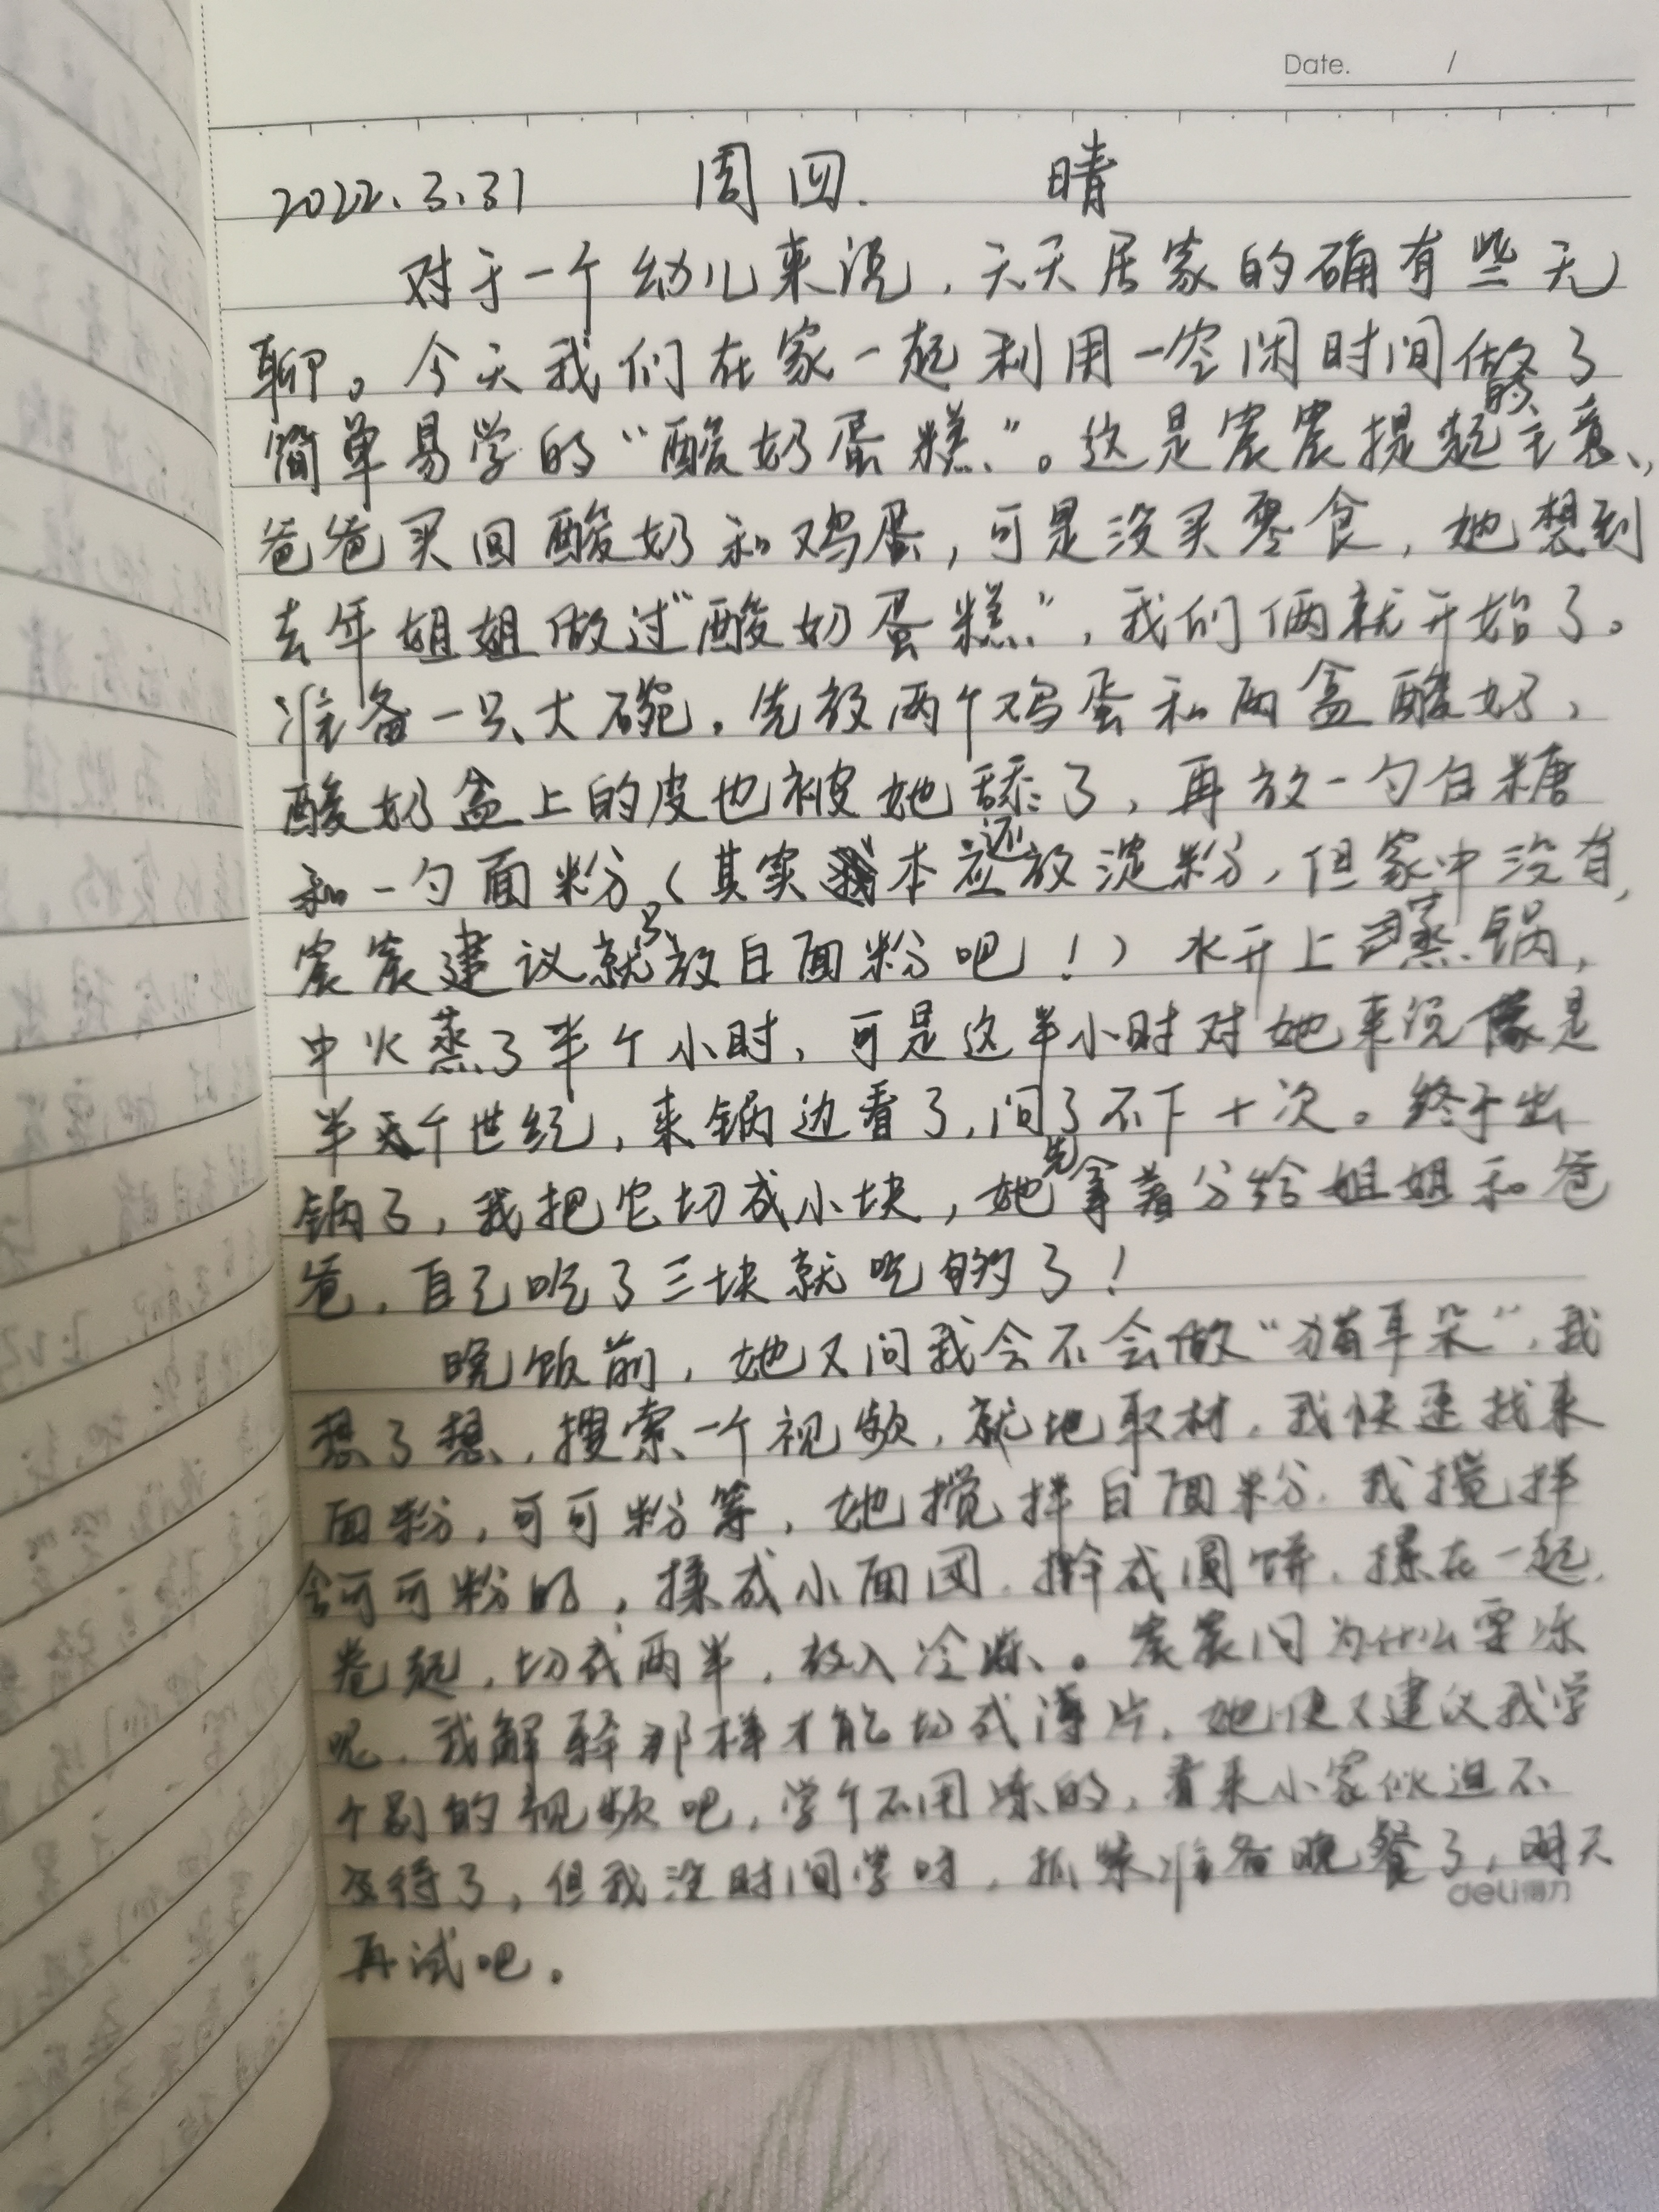 Date. /
2022.3.31 周四. 晴
对于一个幼儿来说，天天居家的确有些无
聊。今天我们在家一起利用一空闲时间做了
简单易学的“酸奶蛋糕”。这是宸宸提起的主意，
爸爸买回酸奶和鸡蛋，可是没买零食，她想到
去年姐姐做过“酸奶蛋糕”，我们俩就开始了。
准备一只大碗，先放两个鸡蛋和两盒酸奶，
酸奶盒上的皮也被她舔了，再放一勺白糖
和一勺面粉（其实本应还放淀粉，但家中没有，
宸宸建议就只放白面粉吧！）水开上蒸锅，
中火蒸了半个小时，可是这半小时对她来说像是
半个世纪，来锅边看了，问了不下十次。终于出
锅了，我把它切成小块，她先拿着分给姐姐和爸
爸，自己吃了三块就吃够了！
晚饭前，她又问我会不会做“猫耳朵”，我
想了想，搜索一个视频，就地取材，我快速找来
面粉，可可粉等，她搅拌白面粉，我搅拌
含可可粉的，揉成小面团，擀成圆饼，摞在一起，
卷起，切成两半，放入冷冻。宸宸问为什么要冻
呢，我解释那样才能切成薄片，她便又建议我学
个别的视频吧，学个不用冻的，看来小家伙迫不
及待了，但我没时间学呀，抓紧准备晚餐了，明天
再试吧。
deli得力